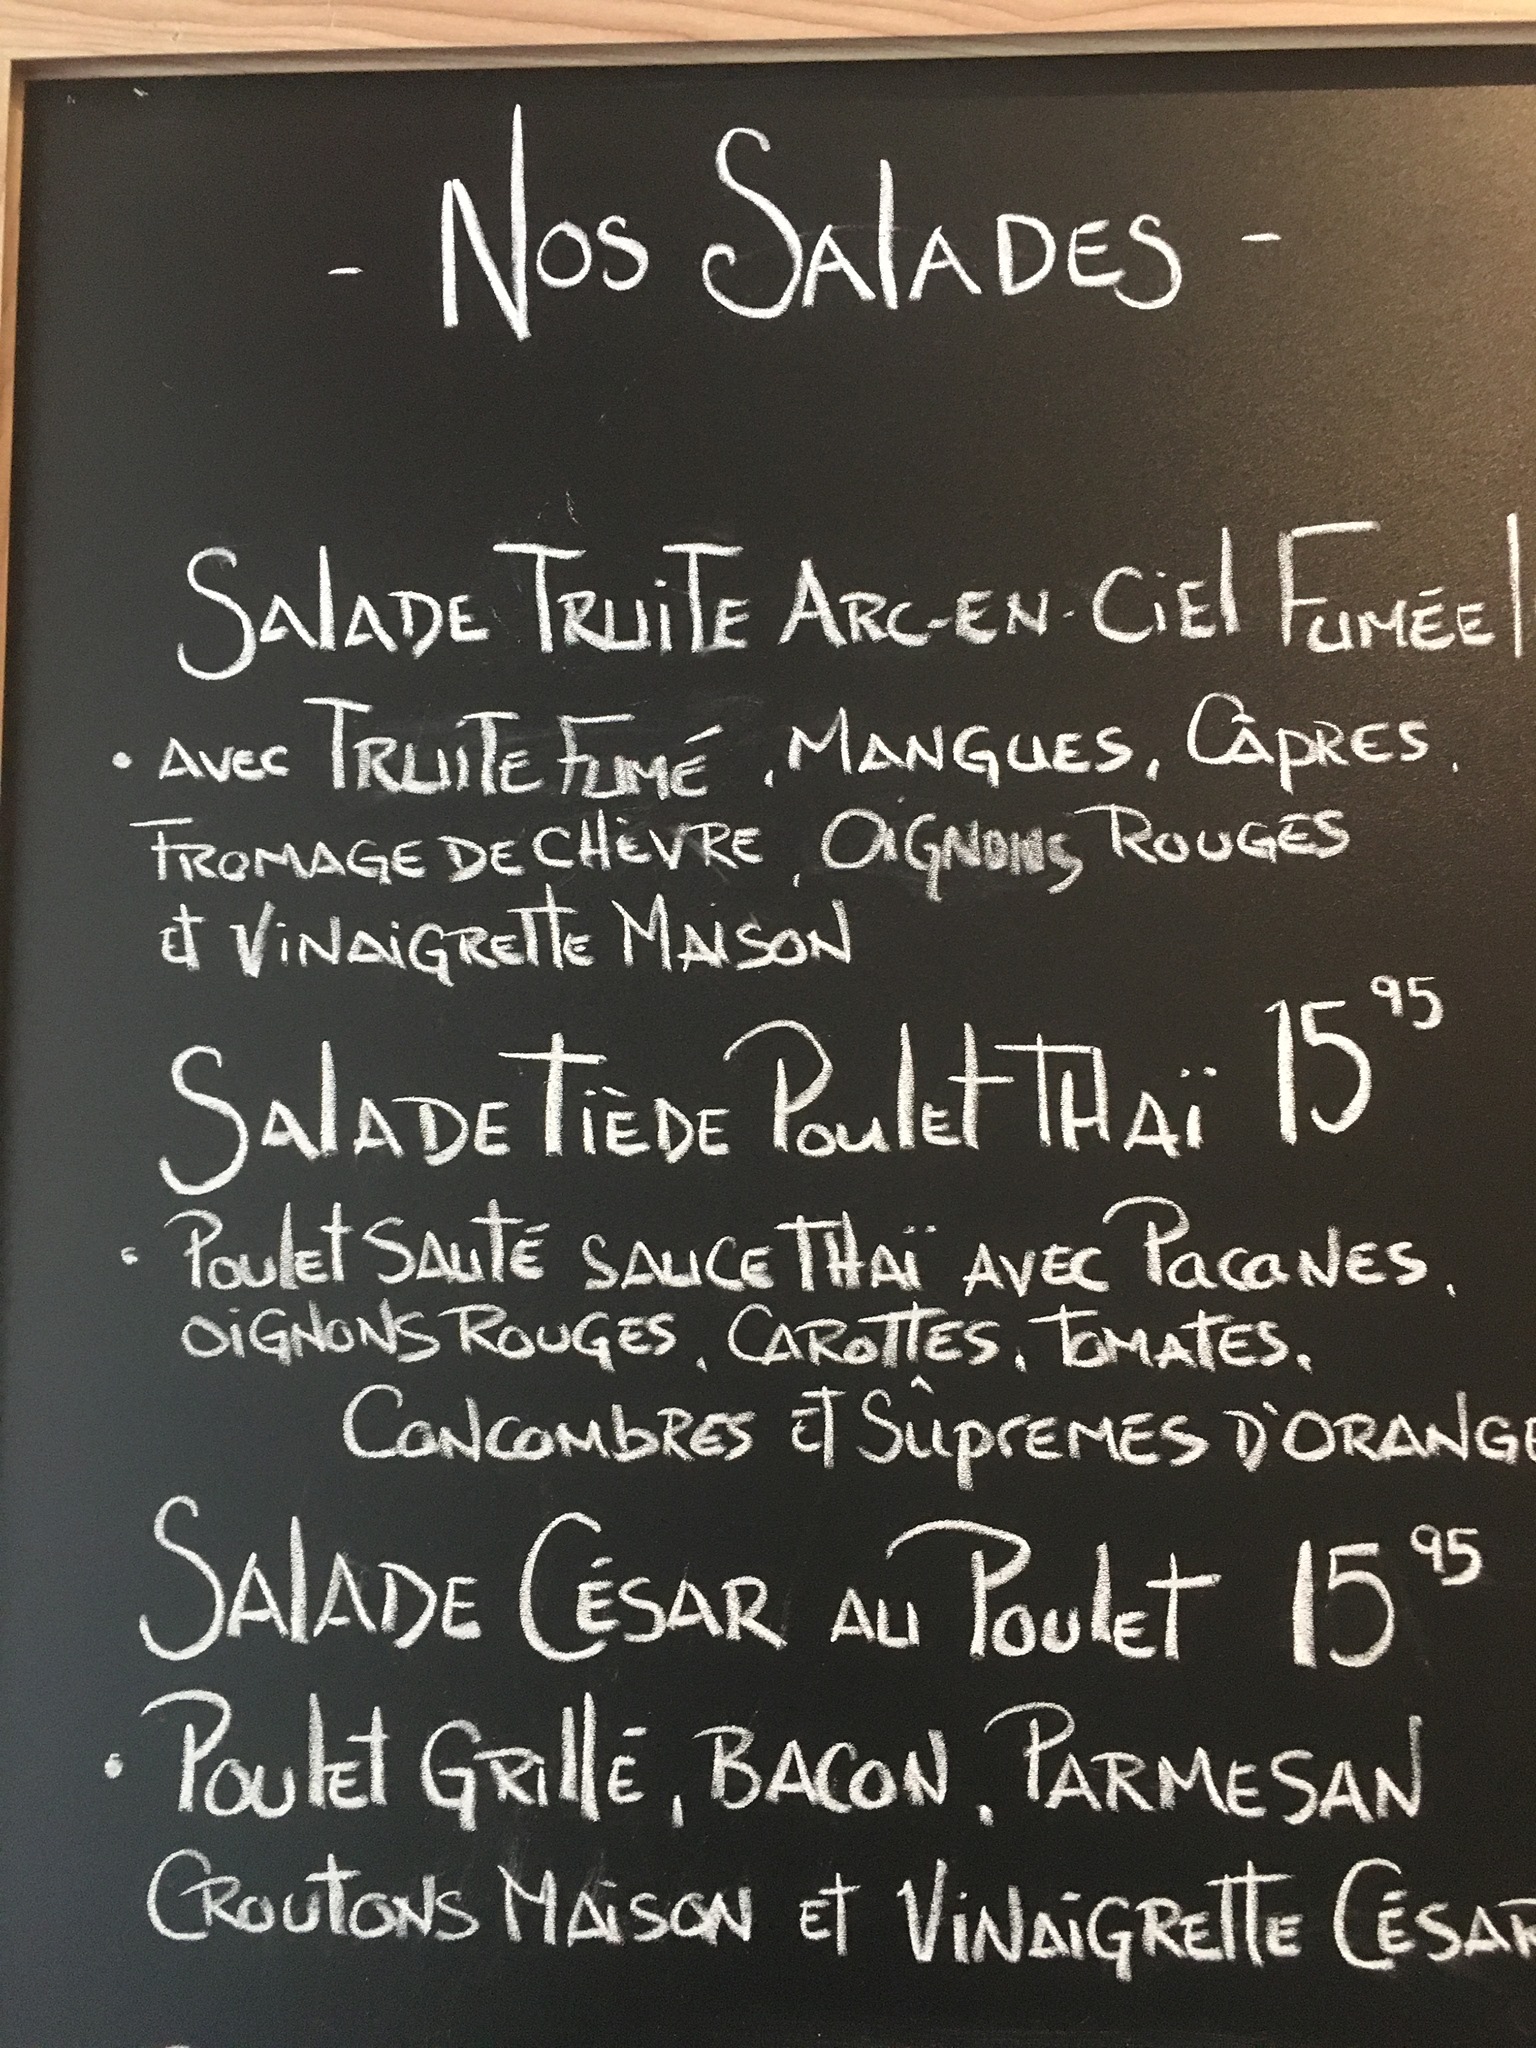 - Nos Salades -
Salade Truite Arc-en-Ciel Fumée
• avec Truite Fumé, Mangues, Câpres,
Fromage de Chèvre, Oignons Rouges
et Vinaigrette Maison
Salade Tiède Poulet Thaï 15 95
• Poulet Sauté sauce Thaï avec Pacanes,
oignons Rouges, Carottes, Tomates,
Concombres et Sûpremes d'orange
Salade César au Poulet 15 95
• Poulet Grillé, Bacon, Parmesan
Croutons Maison et Vinaigrette César